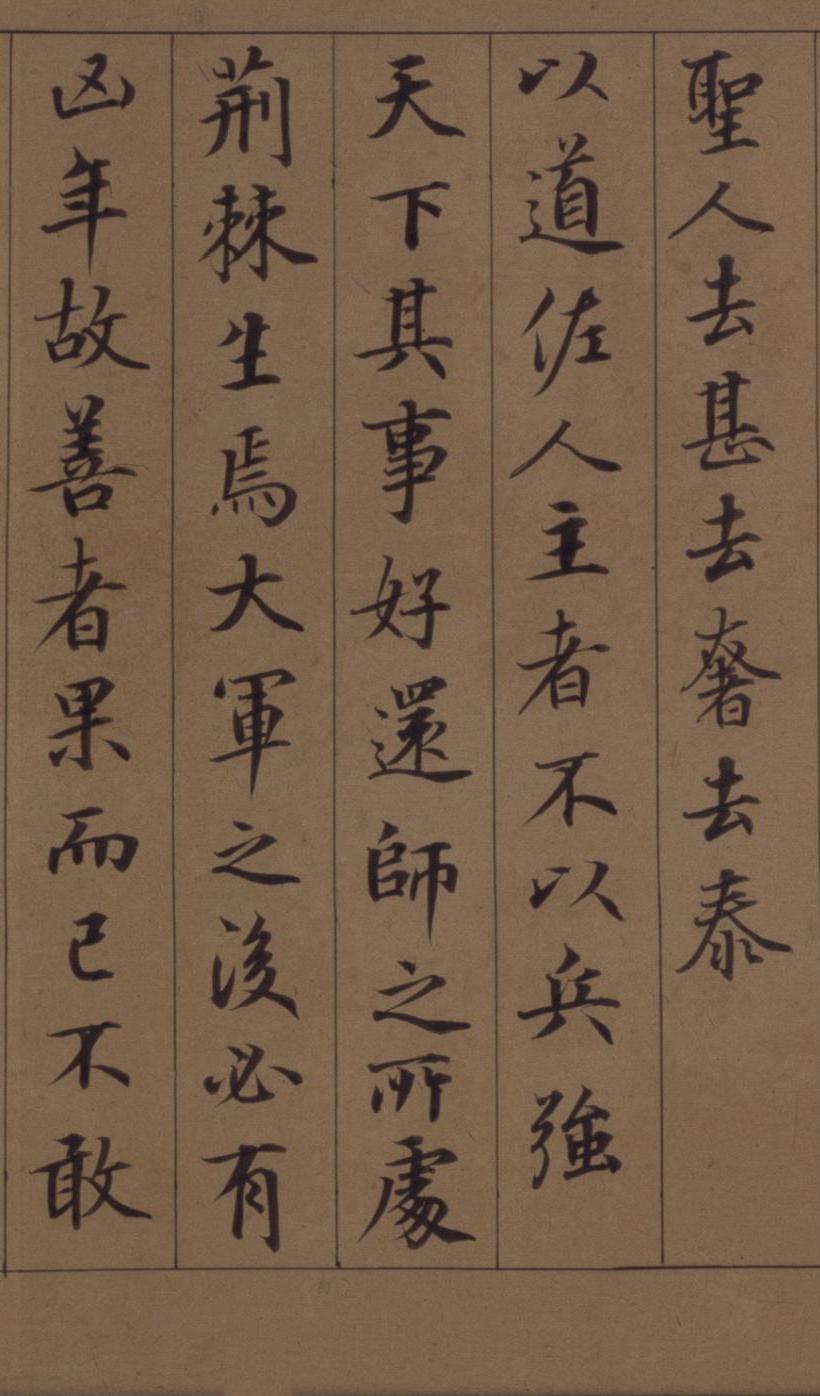 聖人去甚去奢去泰
以道佐人主者不以兵強
天下其事好還師之所處
荆棘生焉大軍之後必有
凶年故善者果而已不敢